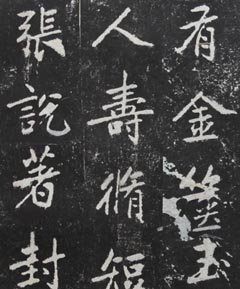 有金箧玉
人壽脩短
張說著封